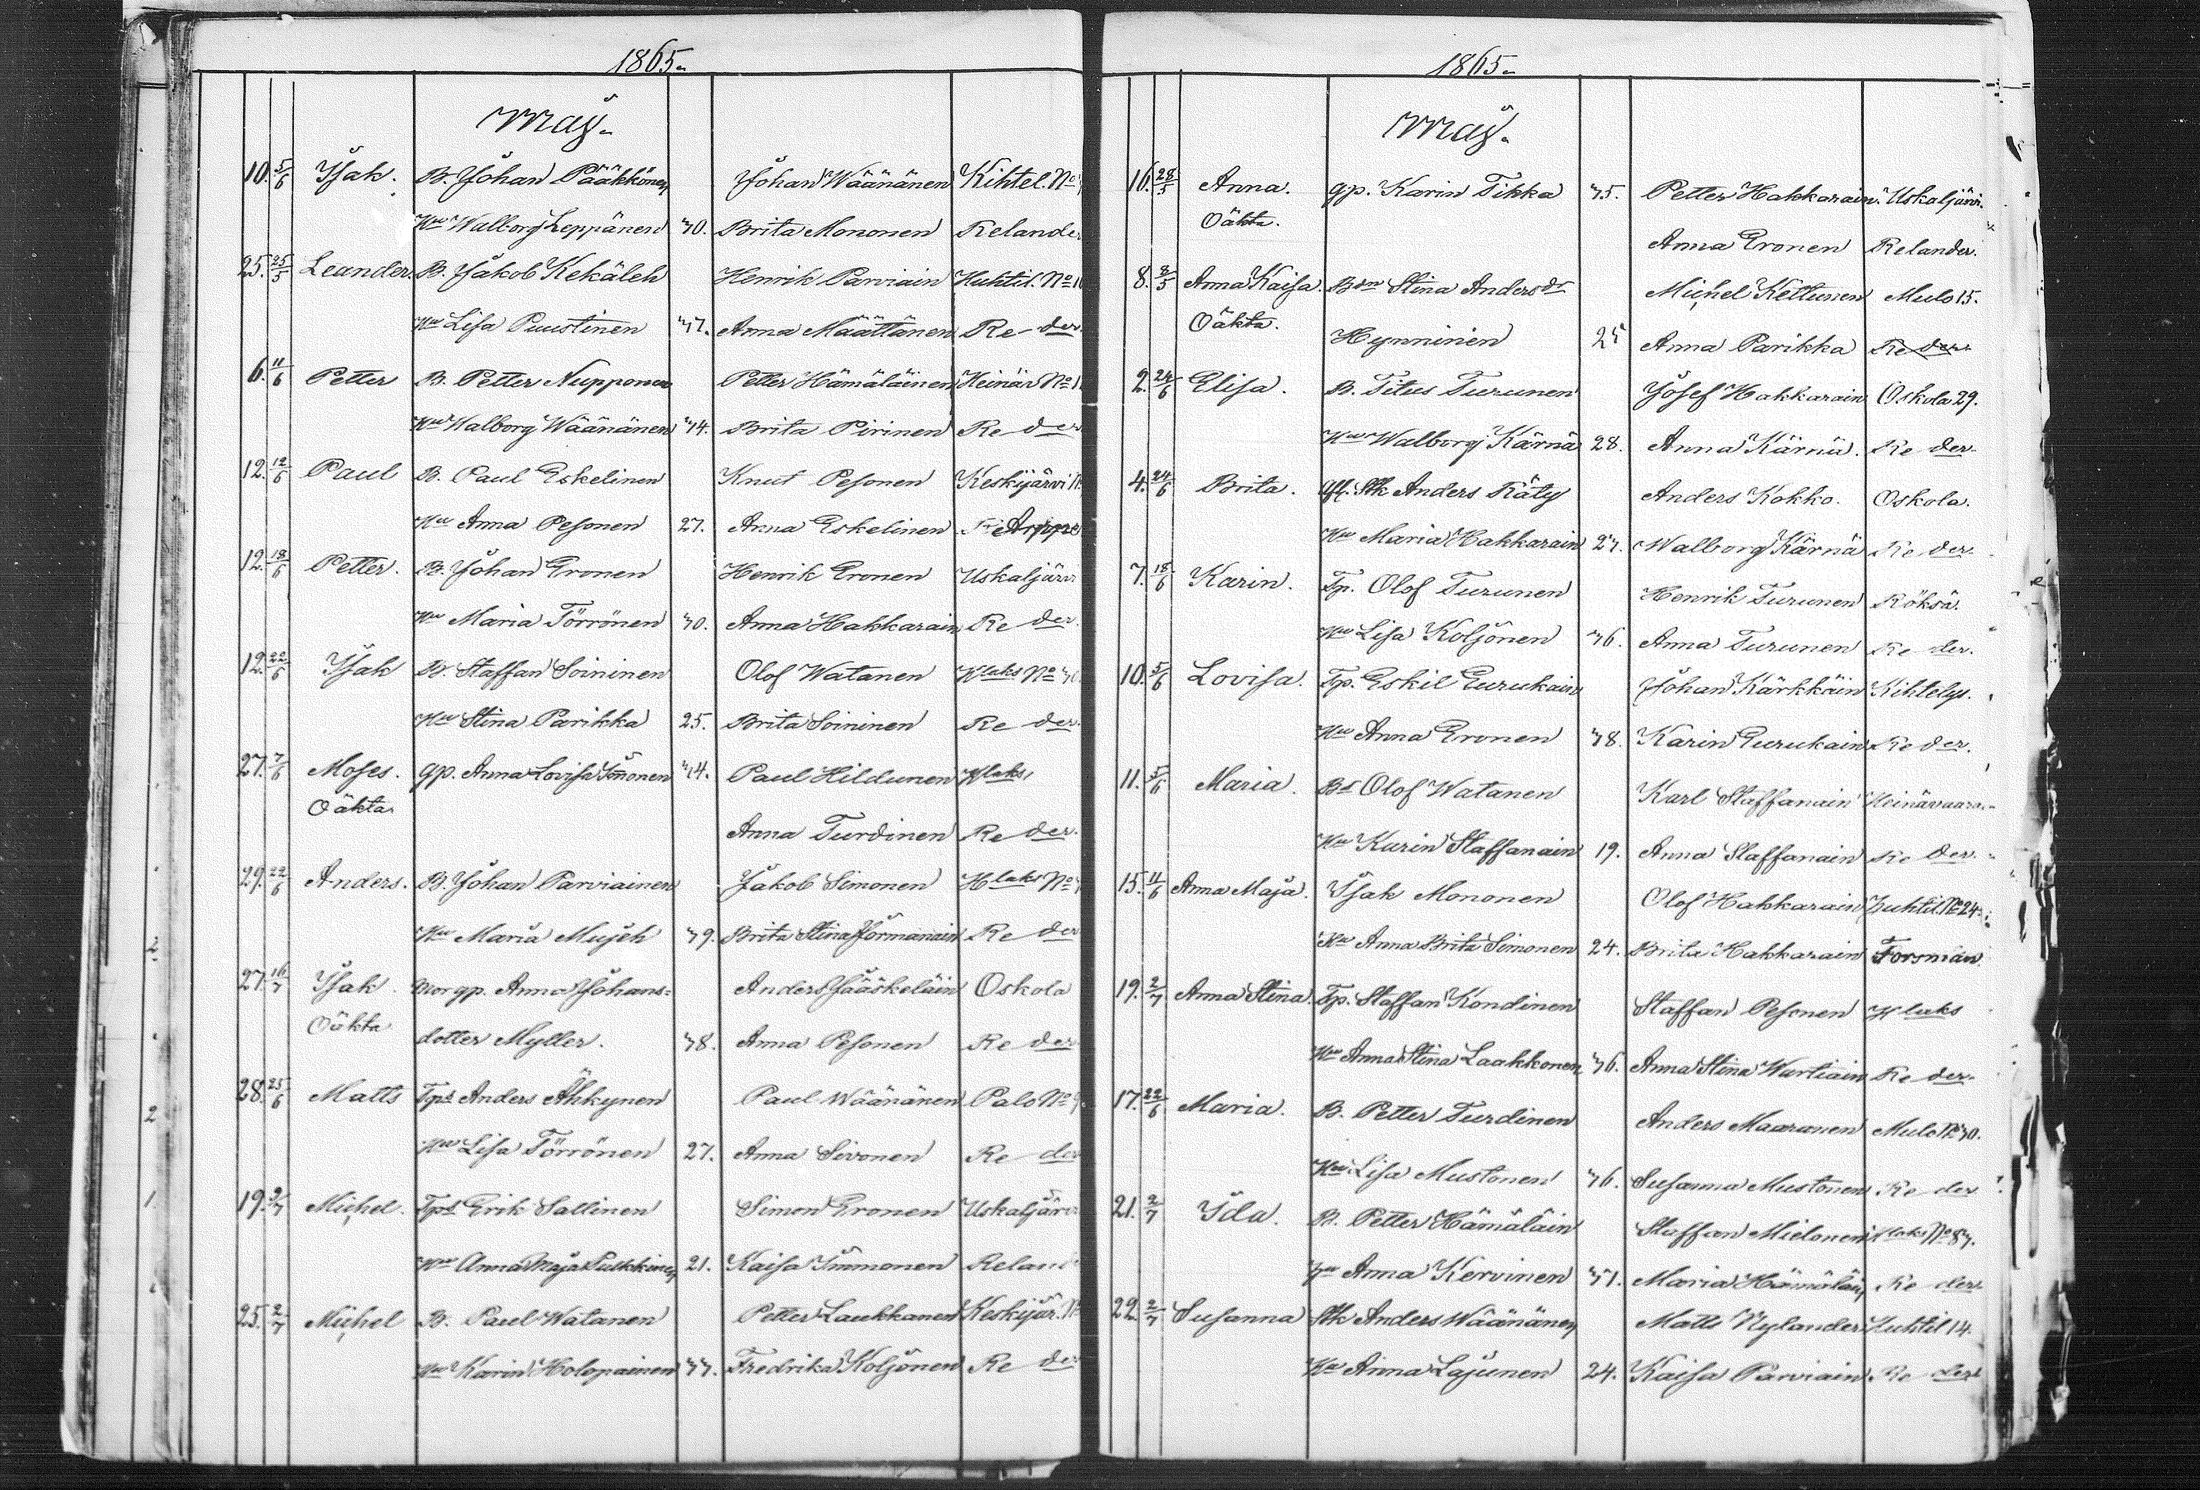 1865.
Maij.
10. 5/6 Isak. B. Johan Pääkkönen Johan Wäänänen Kihtel. No
Hu Walborg Leppänen 30. Brita Mononen Relander
25. 25/5 Leander. B. Jakob Kekäleh Henrik Parviain Huhtil. No 1
Hu Lisa Puustinen 37. Anna Määttänen Re der
6. 11/6 Petter B. Petter Nupponen Petter Hämäläinen Heinäv No 1
Hu Walborg Wäänänen 34. Brita Pirinen Re der
12. 12/6 Paul B. Paul Eskelinen Knut Pesonen Keskijärvi N
Hu Anna Pesonen 27. Anna Eskelinen Arppe
12. 18/6 Petter. B. Johan Eronen Henrik Eronen Uskaljärvi
Hu Maria Törrönen 30. Anna Hakkarain Re der.
12. 22/6 Isak B. Staffan Soininen Olof Watanen Hlaks No 3
Hu Stina Parikka 25. Brita Soininen Re der.
27. 7/6 Moses. gp. Anna Lovisa Immonen 34. Paul Hildunen Hlaks,
Oäkta
Anna Turdinen Re der.
29. 22/6 Anders. B. Johan Parviainen Jakob Simonen Hlaks No
Hu Maria Mujeh 39. Brita Stina Jormanain Re der
27. 16/7 Isak Morgp. Anna Johans= Anders Jääskeläin Oskola
Oäkta dotter Myller. 38. Anna Pesonen Re der
28. 25/6 Matts Tps Anders Ähkynen Paul Wäänänen Palo No 9
Hu Lisa Törrönen 27. Anna Sivonen Re der
19. 9/7 Michel. Tps Erik Sallinen Simon Eronen Uskaljärvi
Hu Anna Maja Pulkkinen 21. Kaisa Immonen Reland
25. 2/7 Michel B. Paul Watanen Petter Laukkanen Keskijär. N
Hu Karin Holopainen 33. Fredrika Koljonen Re der
1865.
Maij.
16. 28/5 Anna. gp. Karin Tikka 35. Petter Hakkarain. Uskaljärvi.
Oäkta.
Anna Eronen Relander.
8. 8/5 Anna Kaisa. Bdr Stina Andersdr Michel Kettunen Mulo 15.
Oäkta. Hynninen 25 Anna Parikka Re der
2. 24/6 Elisa. B. Titus Turunen Josef Hakkarain Oskola 29.
Hu Walborg Kärnä 28. Anna Kärnä. Re der.
4. 24/6 Brita. Afsk. Stk Anders Räty Anders Kokko. Oskola.
Hu Maria Hakkarain 23. Walborg Kärnä Re der.
7. 18/6 Karin. Tp. Olof Turunen Henrik Turunen Röksä.
Hu Lisa Koljonen 36. Anna Turunen Re der.
10. 5/6 Lovisa. Tp. Eskil Gurukain Johan Kärkkäin Kihtelys.
Hu Anna Eronen 38. Karin Gurukain Re der.
11. 5/6 Maria. Bs Olof Watanen Karl Staffanain Heinävaara
Hu Karin Staffanain 19. Anna Staffanain Re der.
15. 11/6 Anna Maja. Isak Mononen Olof Hakkarain Huhtil. No 24.
Hu Anna Brita Simonen 24. Brita Hakkarain Forsman.
19. 2/7 Anna Stina. Tp. Staffan Kondinen Staffan Pesonen Hlaks
Hu Anna Stina Laakkonen 36. Anna Stina Wartiain Re der.
17. 22/6 Maria. B. Petter Turdinen Anders Maaranen Mulo No 30.
Hu Lisa Mustonen 36. Susanna Mustonen Re der
21. 2/7 Ida. B. Petter Hämäläin Staffan Mielonen Hlaks No 83.
Hu Anna Kervinen 31. Maria Hämäläin Re der
22. 2/7 Susanna Stk Anders Wäänänen Matts Nylander Huhtil 14.
Hu Anna Lajunen 24. Kaisa Parviain Re der